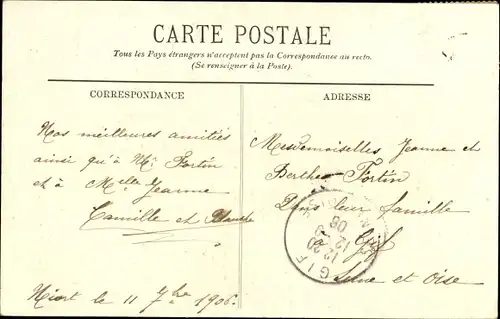 CARTE POSTALE
Tous les Pays étrangers n'acceptent pas la Correspondance au recto.
(Se renseigner à la Poste).
CORRESPONDANCE
Nos meilleures amitiés
ainsi qu'à Mr Fortin
et à Melle Jeanne
Camille et Blanche
Niort le 11 7bre 1906.
ADRESSE
Mesdemoiselles Jeanne et
Berthe Fortin
Dans leur famille
à Gif
Seine et Oise
GIF
12 20
12 -9
06